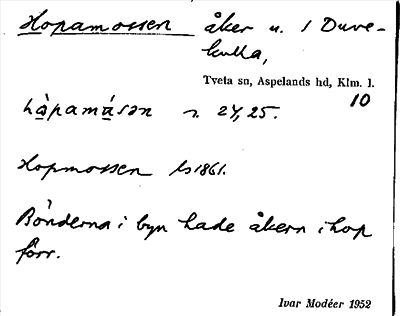 Hopamossen åker u. 1 Duve-
kulla,
Tveta sn, Aspelands hd, Klm. l.
10
hòpamásən n. 24, 25.
Hopmossen ls 1861.
Bönderna i byn hade åkern ihop
förr.
Ivar Modéer 1952